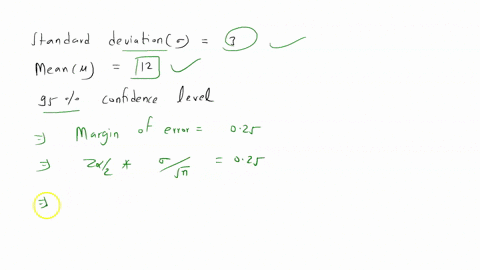 Standard deviation (σ) = 3 ✓
Mean (μ) = 12 ✓
95 % confidence level
⇒ Margin of error = 0.25
⇒ Zα/2 * σ/√n = 0.25
⇒